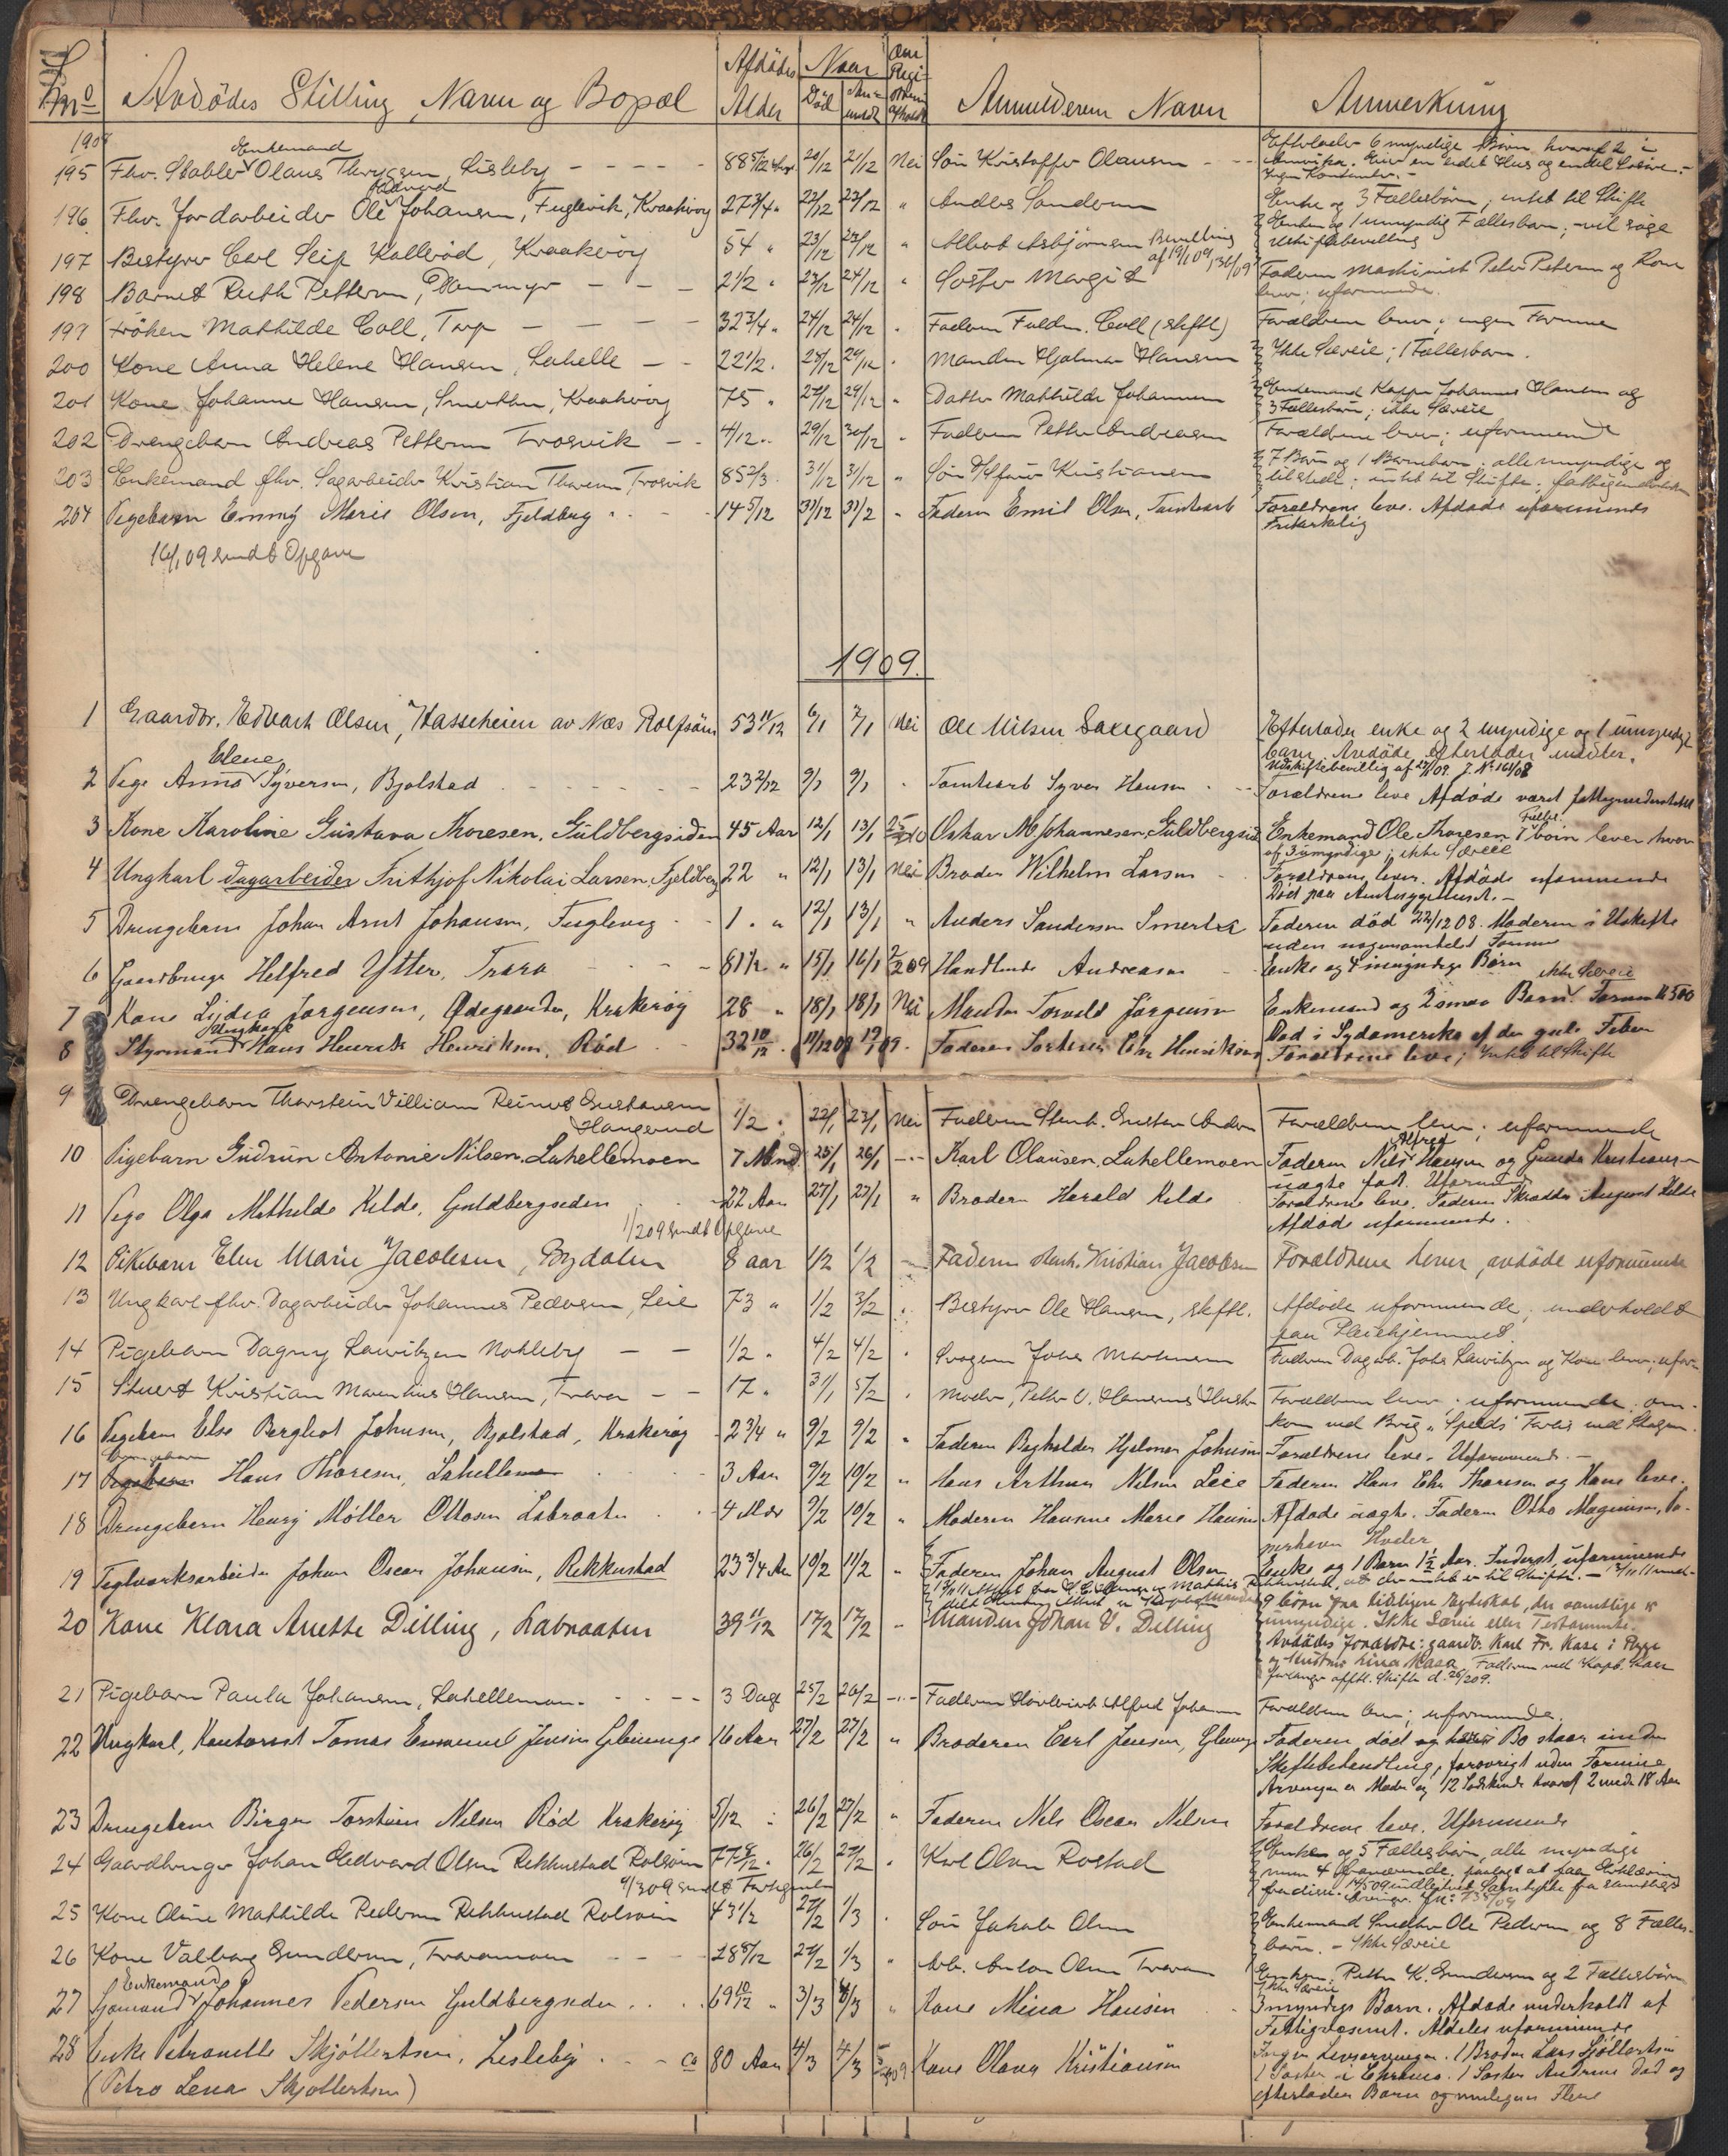 No Avdödes Stilling, Navn og Bopæl Afdödes Alder Naar Död Anmeldt Om Registrering afholdt Anmelderens Navn Anmerkning
1908
195 Fhv. Stabler Enkemand Olaus Thrygsen, Lisleby 88 5/12 20/12 21/12 Nei Sön Kristoffer Olausen Efterlader 6 myndige Börn hvoraf 2 i
Amerika. Eier en liden Hus og endel Lösöre.
Ingen Kontanter.
196 Fhv. Jordarbeider Ole Edvard Johansen, Fuglevik, Kraakeröy 27 3/4 22/12 23/12 " Anders Sandersen Enke og 3 Fællesbörn; intet til Skifte
197 Bestyrer Carl Seip Kalleröd, Kraakeröy 54 " 23/12 23/12 " Albert Asbjörnsen Bevilling af 19/1 09 Enken og 1 umyndig Fællesbarn; vil söge
Uskiftebevilling
198 Barnet Ruth Pettersen, Dammyr 2 1/2 " 23/12 24/12 " Söster Margit Faderen Maskinist Peter Petersen og Kone
lever; uformuende.
199 Fröken Mathilde Coll, Torp 32 3/4 " 24/12 24/12 " Faderen Fuldm. Coll (skftl) Forældrene lever; ingen Formue
200 Kone Anna Helene Hansen, Lahelle 22 1/2 " 25/12 29/12 " Manden Hjalmar Hansen Ikke Særeie; 1 Fællesbarn.
201 Kone Johanne Hansen, Smertu, Kraakeröy 75 " 27/12 29/12 " Datter Mathilde Johannesen Enkemand Kasper Johannes Hansen og
3 Fællesbörn; ikke Særeie
202 Drengebarn Andreas Pettersen Trosvik 4/12 " 29/12 30/12 " Faderen Petter Andreasen Forældrene lever; uformuende
203 Enkemand fhv. Sagarbeider Kristian Thoresen, Trosvik 85 2/3 31/12 31/12 " Sön Kristiansen 7 Börn og 1 Barnebarn; alle myndige og
tilstede; intet til Skifte; fattigunderstöttet
204 Pigebarn Emmy Marie Olsen, Fjeldberg 14 5/12 31/12 31/12 " Faderen Emil Olsen, Tomtearb Forældrene leve. Afdöde uformuende
Frikirkelig
16/1 09 sendt Opgave
1909.
1 Gaardbr. Edvart Olsen, Hasseheien av Næs Rolfsöen 53 11/12 6/1 7/1 Nei Ole Nilsen Saxegaard Efterlader enke og 2 myndige og 1 umyndigt
barn. Avdöde efterlader midler.
Uskiftebevillig af 27/1 09. J. No 161/08
2 Pige Anna Elene Syversen, Bjolstad 23 2/12 9/1 9/1 " Tomtearb Syver Hansen Forældrene leve Afdöde været fattigunderstöttet
3 Kone Karoline Gustava Thoresen, Guldbergsiden 45 Aar 12/1 13/1 Oskar M Johannesen, Guldbergsid Enkemand Ole Thoresen 7 Fælles börn lever hvor
af 3 umyndige; ikke Særeie
4 Ungkarl dagarbeider Frithjof Nikolai Larsen, Fjeldberg 22 " 12/1 13/1 Nei Broder Wilhelm Larsen Forældrene lever. Afdöde uformuende
Död paa Amtssygehuset.
5 Drengebarn Johan Arnt Johansen, Fuglevig 1 " 12/1 13/1 " Anders Sandersen Smertu Faderen död 22/12 08. Moderen i Uskifte
uden nogensomhelst Formue
6 Gaardbruger Helfred Ytter, Trara 81 1/2 " 15/1 16/1 Handlende Andreasen Enke og 4 myndige Börn
7 Kone Lydia Jorgensen, Ödegaarden, Krakeröy 28 " 18/1 18/1 Nei Manden Torvald Jörgensen Enkemand og 2 smaa Barn ikke Særeie. Formue K 500
8 Styrmand Ungkarl Hans Henrik Henriksen, Röd 32 10/12 11/12 08 19/1 09 " Faderen Henriksen Död i Sydamerika af den gule Feber
Forældrene leve; Intet til Skifte
9 Drengebarn Thorstein Villiam Reinert Gustavsen
Haugerud 1/2 " 22/1 23/1 Nei Faderen Stenh. Gustav Forældrene lever; uformuende
10 Pigebarn Gudrun Antonie Nilsen, Lahellemoen 7 Mnd 25/1 26/1 Karl Olausen, Lahellemoen Faderen Nils Alfred Hansen og Gunda Kristians-
uægte född. Uformuende
11 Pige Olga Mathilde Kilde, Guldbergseden 22 Aar 27/1 27/1 " Broderen Harald Kilde Forældrene leve. Faderen Skrædder August Kilde
Afdöde uformuende.
1/2 09 sendt Opgave
12 Pikebarn Elen Marie Jacobsen, Bydalen 8 aar 1/2 1/2 Faderen stenh. Kristian Jacobsen Forældrene lever, avdöde uformuende
13 Ungkarl fhv. Dagarbeider Johannes Pedersen, Leie 73 " 1/2 3/2 " Bestyrer Ole Hansen, skftl. Afdöde uformuende, underholdt
paa Pleiehjemmet.
14 Pigebarn Dagny Lauritzen Nökleby 1/2 " 4/2 4/2 " Svogeren Johs Martinsen Faderen Dagarb. Johs Lauritzen og Kone lever; ufor-
15 Stuert Kristian Marenius Hansen, Trara 17 " 31/1 5/2 " Moder, Petter O. Hansens Hustru Forældrene lever; uformuende; om-
kom ved Brig "Speeds" Forlis ved Skagen.
16 Pigebarn Else Bergliot Johnsen, Bjolstad, Krakeröy 2 3/4 " 9/2 9/2 " Faderen Bogholder Hjalmar Johnsen Forældrene leve. Uformuende.
17 Drengebarn Hans Thoresen, Lahellemoen 3 Aar 9/2 10/2 " Hans Arthur Nilsen Leie Faderen Hans Chr Thoresen og Kone leve.
18 Drengebarn Henry Möller Ottosen Labraaten 4 Mdr 9/2 10/2 " Moderen Hansine Marie Hansen Afdöde uægte. Faderen Otto Magnusen, Pa-
perhavn Hvaler
19 Teglværksarbeider Johan Oscar Johansen, Rekkustad 23 3/4 Aar 10/2 11/2 " Faderen Johan August Olsen Enke og 1 Barn 1 1/2 Aar. Inderst, uformuende
20 Kone Klara Anette Dilling, Labraaten 39 11/12 17/2 17/2 " Manden Johan V. Dilling 9 börn fra tidligere Ægteskab, der samtlige er
umyndige. Ikke Særeie eller Testamente.
Avdödes forældre: gaardb. Karl Fr. Kase i Rygge
og Hustru Lina Kasa. Faderen ved Kapt. Kaas
forlanger offtl. Skifte d. 26/2 09.
21 Pigebarn Paula Johansen, Lahellemoen 3 Dage 25/2 26/2 Faderen Alfred Johansen Forældrene lever; uformuende.
22 Ungkarl, Kontorist Tomas Emanuel Jensen Glemminge 16 Aar 27/2 27/2 " Broderen Carl Jensen, Glemge Faderen död og Bo staar under
Skiftebehandling, forövrigt uden Formue
Arvinger er Moder og 12 Sødskende hvoraf 2 under 18 Aar
23 Drengebarn Birger Torstein Nilsen Röd Krakeröy 5/12 " 26/2 27/2 " Faderen Nils Oscar Nilsen Forældrene leve. Uformuende
24 Gaardbruger Johan Edvard Olsen Rekkustad Rolsöen 77 26/2 27/2 " Karl Olsen Rostad Enken og 5 Fællesbörn, alle myndige
4/3 09 sendt Fortegnelse
25 Kone Oline Mathilde Pedersen Rekkustad Rolsöen 43 1/2 27/2 1/3 " Sön Jakob Olsen Enkemand Smeder Ole Pedersen og 8 Fælles-
börn. - Ikke Særeie
26 Kone Valborg Gundersen, Traramoen 28 8/12 27/2 1/3 " Arb. Anton Olsen Trara Enkem. Petter K. Gundersen og 2 Fællesbörn
Ikke Særeie
27 Sjömand Enkemand Johannes Pedersen Guldbergseden 69 10/12 " 3/3 4/3 " Kone Mina Hansen 3 myndige Barn. Afdöde underholdt af
Fattigvæsenet. Aldeles uformuende
28 Enke Petronelle Skjöllertsen, Lisleby ca 80 Aar 4/3 4/3 Kone Olava Kristiansen Ingen Livsarvinger. 1 Broder Lars Sjöllertsen
(Petro Lena Skjollertsen) 1 Söster i . 1 Söster Andrine Död og
efterlader Barn og muligens Flere